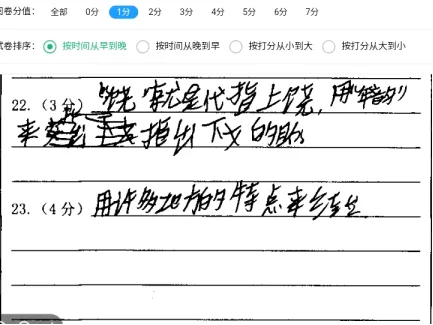 阅卷分值： 全部 0分 1分 2分 3分 4分 5分 6分 7分
试卷排序： 按时间从早到晚 按时间从晚到早 按打分从小到大 按打分从大到小
22.（3分）"饶"就是代指上饶，用"韵"
来 指出下文的
23.（4分）用许多地方的特点来